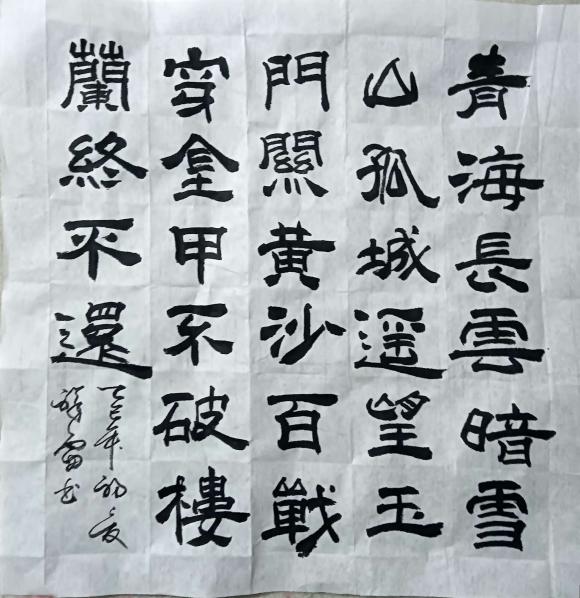 青海長雲暗雪
山孤城遥望玉
門關黄沙百戰
穿金甲不破樓
蘭終不還
乙巳年初夏
书